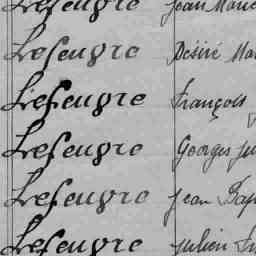 Lefeuvre Jean Marie
Lefeuvre Désiré Mar
Lefeuvre François
Lefeuvre Georges Ju
Lefeuvre Jean Bap
Lefeuvre Julien